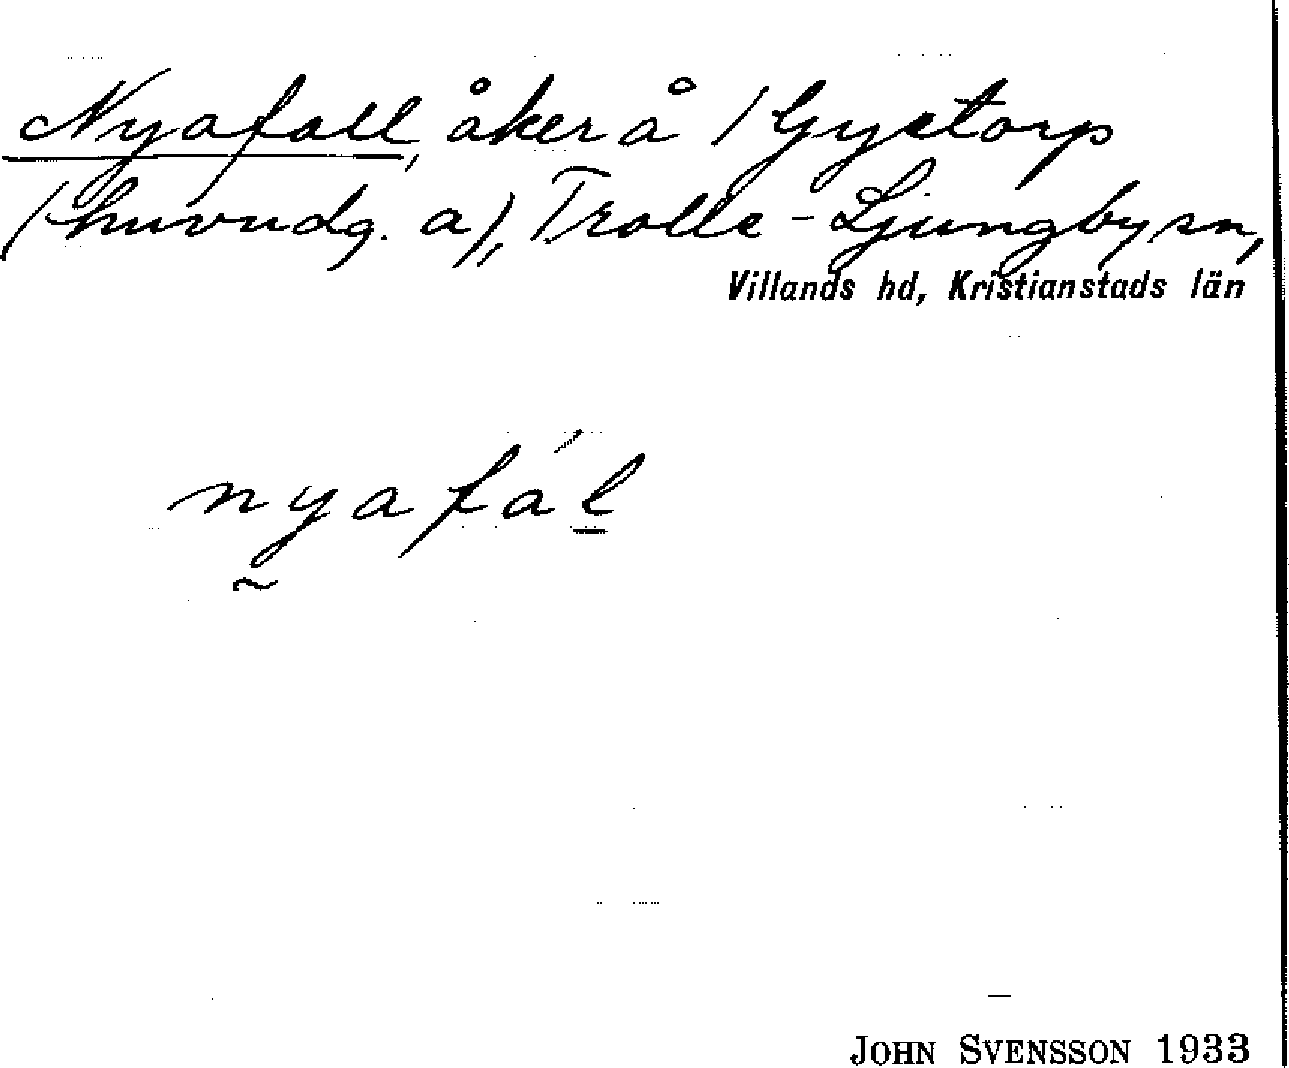 Nyafall, åker å /Gyetorp
(huvudg. a), Trolle-Ljungby sn,
Villands hd, Kristianstads län
nyafál
JOHN SVENSSON 1933